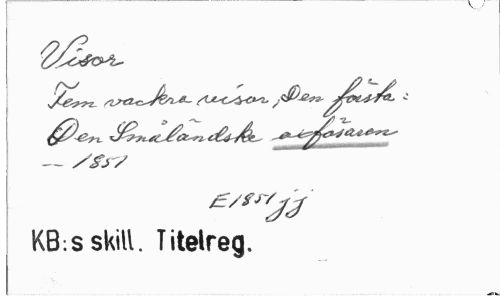 Visor
Fem vackra visor, Den första:
Den Småländske oxfösaren
-- 1851
E1851 jj
KB:s skill. Titelreg.